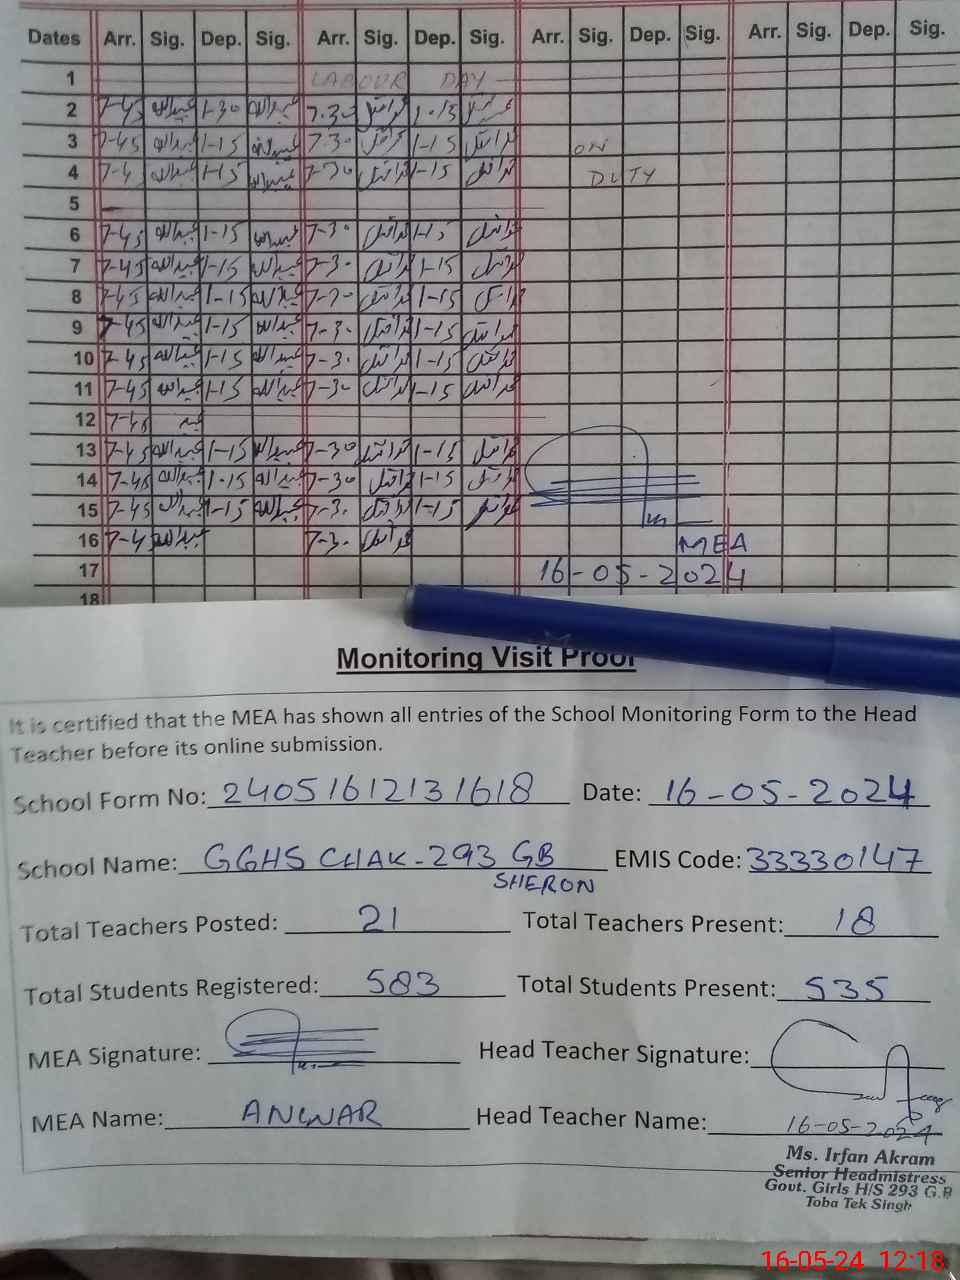 Dates Arr. Sig. Dep. Sig. Arr. Sig. Dep. Sig. Arr. Sig. Dep. Sig. Arr. Sig. Dep. Sig.
1 LABOUR DAY
2 7-45 عبداللہ 1-30 عبداللہ 7.30 1-15
3 7-45 عبداللہ 1-15 7.30 1-15 ON
4 7-45 عبداللہ 1-15 عبداللہ 7-30 1-15 DUTY
5
6 7-45 عبداللہ 1-15 عبداللہ 7-30 1-15
7 7-45 عبداللہ 1-15 عبداللہ 7-30 1-15
8 7-45 عبداللہ 1-15 عبداللہ 7-30 1-15
9 7-45 عبداللہ 1-15 عبداللہ 7-30 1-15
10 7-45 عبداللہ 1-15 عبداللہ 7-30 1-15
11 7-45 عبداللہ 1-15 عبداللہ 7-30 1-15
12 7-45 عبد
13 7-45 عبداللہ 1-15 عبداللہ 7-30 1-15
14 7-45 عبداللہ 1-15 عبداللہ 7-30 1-15
15 7-45 عبداللہ 1-15 عبداللہ 7-30 1-15
16 7-45 عبداللہ 7-30 MEA
17 16-05-2024
18
Monitoring Visit Proof
It is certified that the MEA has shown all entries of the School Monitoring Form to the Head
Teacher before its online submission.
School Form No: 24051612131618 Date: 16-05-2024
School Name: GGHS CHAK-293 GB EMIS Code: 33330147
SHERON
Total Teachers Posted: 21 Total Teachers Present: 18
Total Students Registered: 583 Total Students Present: 535
MEA Signature: Head Teacher Signature:
MEA Name: ANWAR Head Teacher Name:
16-05-2024
Ms. Irfan Akram
Senior Headmistress
Govt. Girls H/S 293 G.B
Toba Tek Singh
16-05-24 12:18